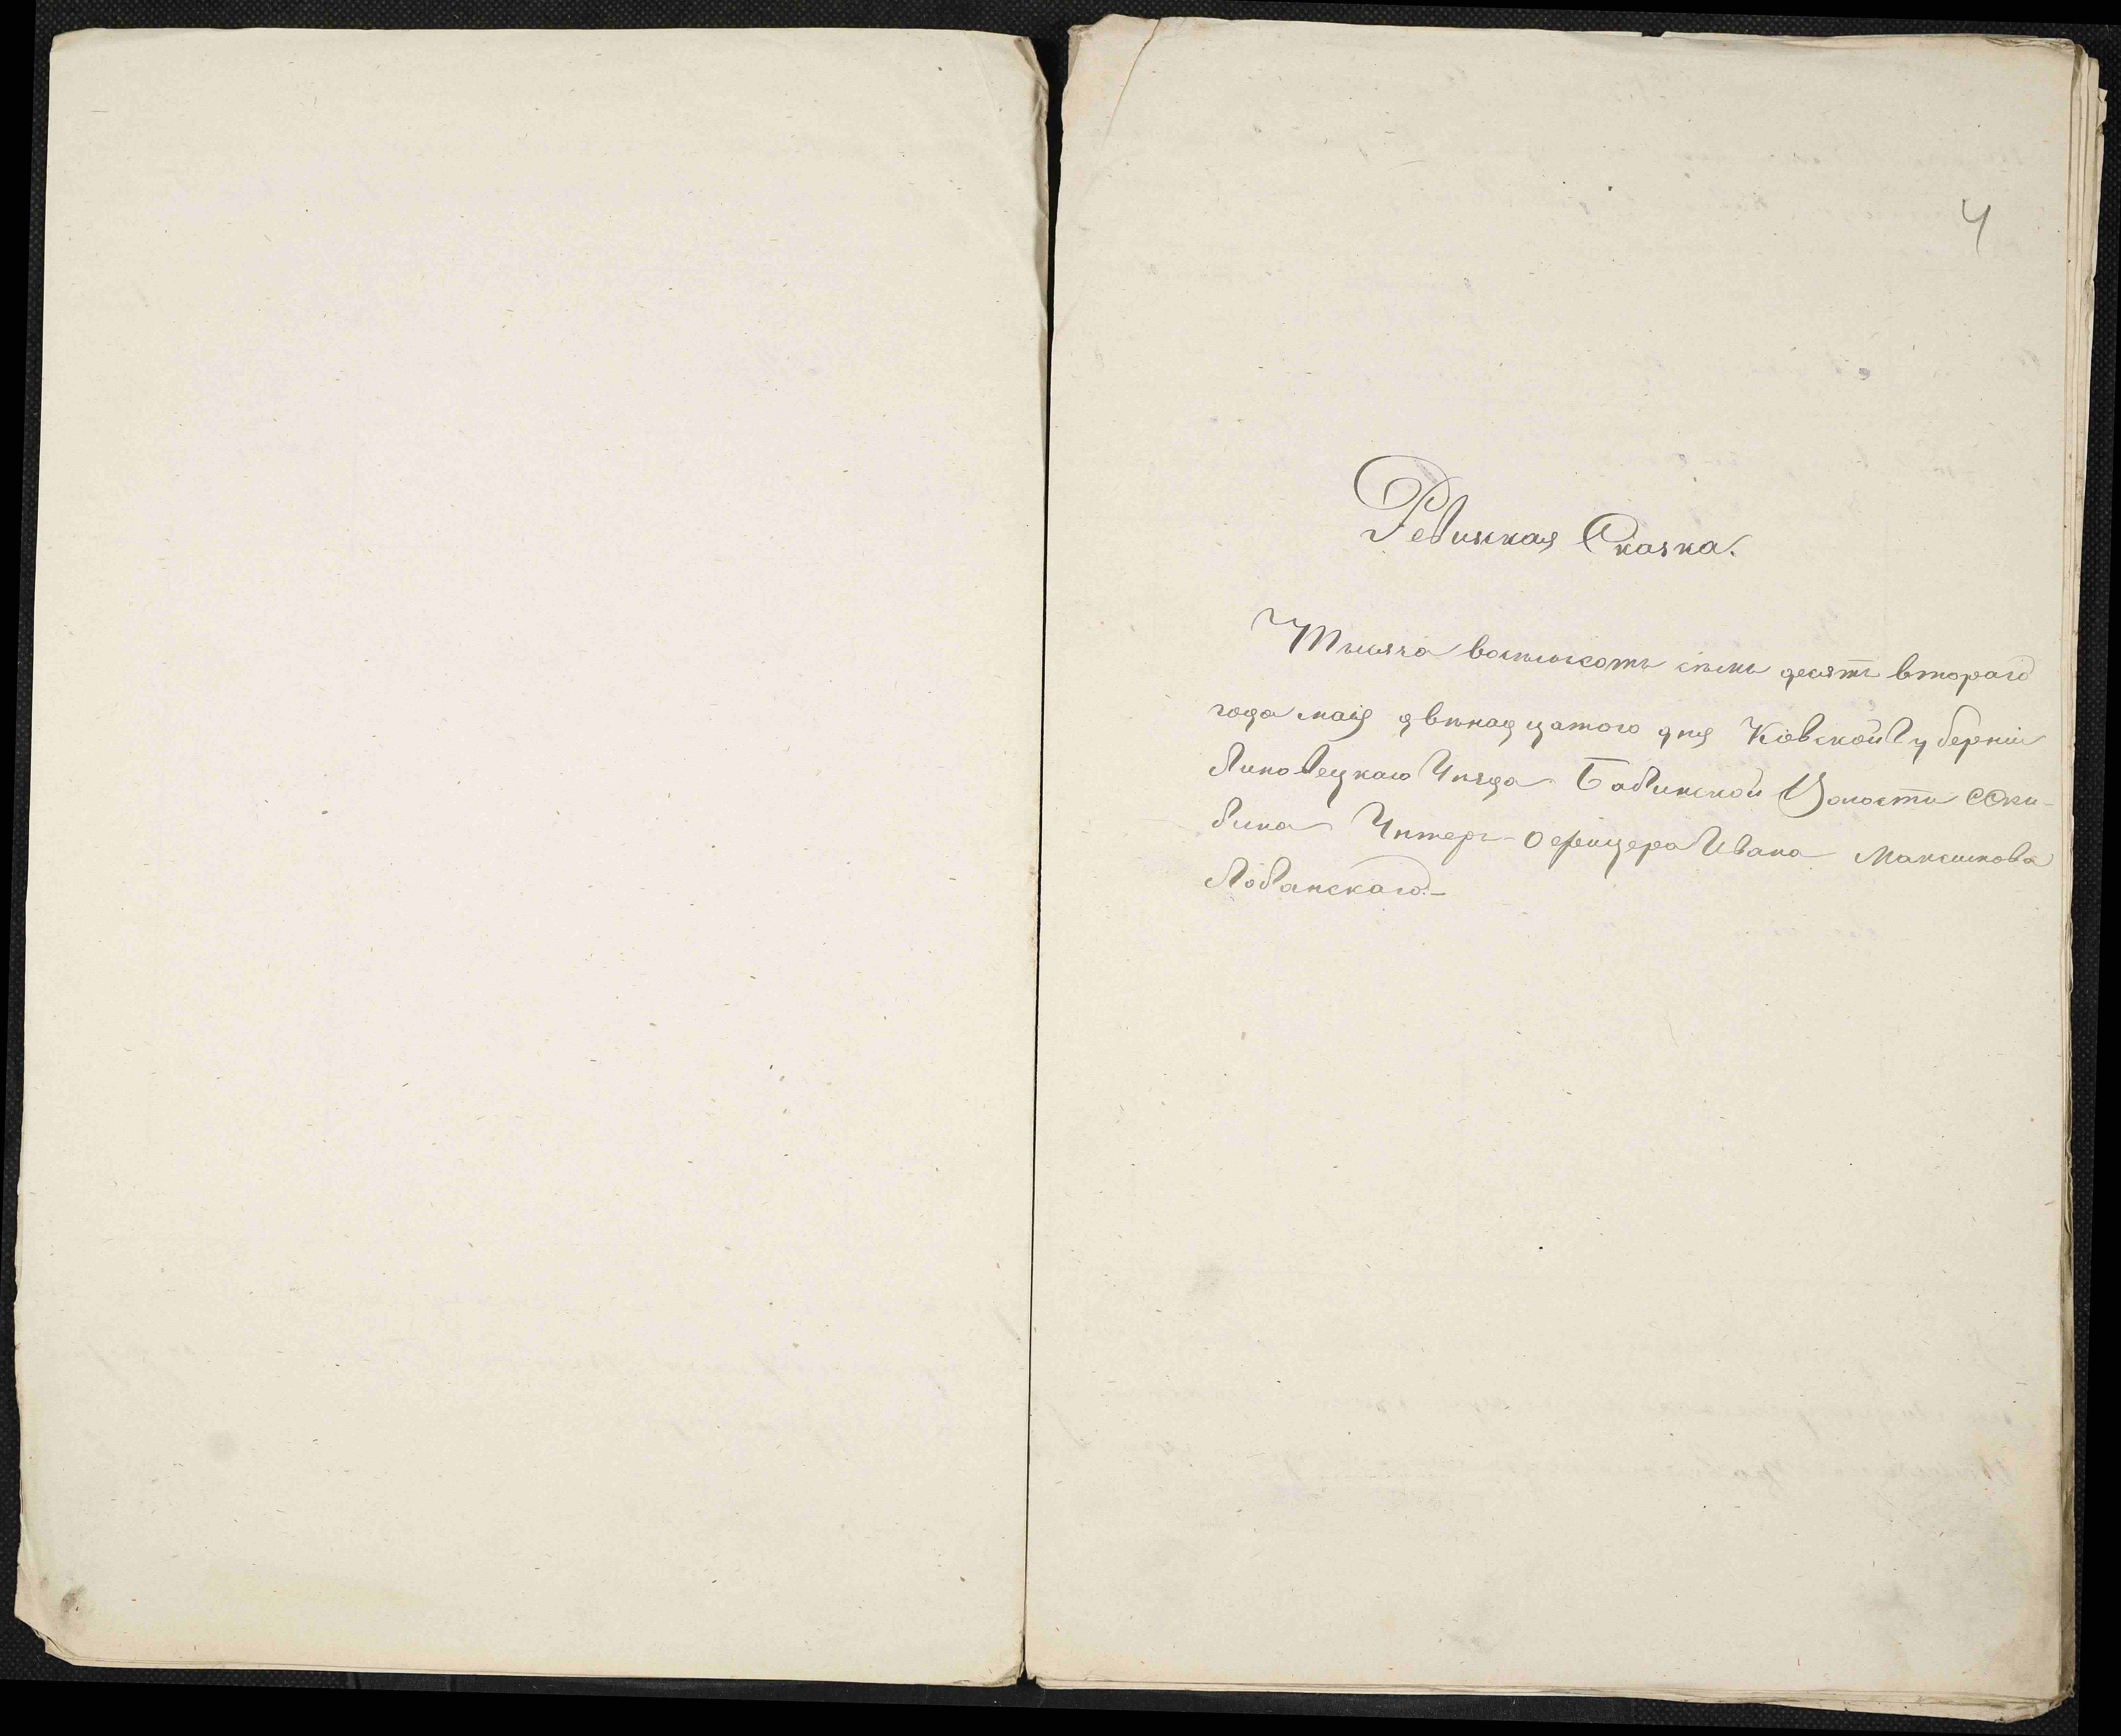 4
Ревизкая Сказка.
Тысяча восемсотъ семь десятъ втораго
года маія двѣнадцатого дня Кіевской Губерніи
Липовецкаго Уѣзда Бабинской Волости С. Ски-
бина Унтеръ-Офицера Ивана Максимова
Лобанскаго.-